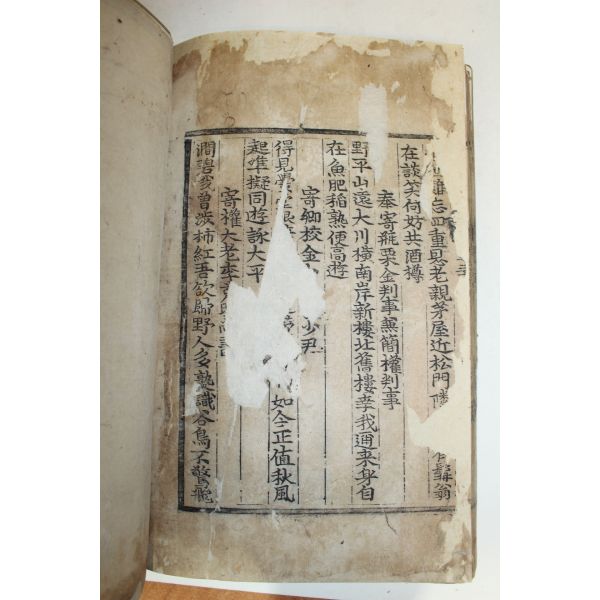 忘四重恩老親茅屋近松門翁
在談笑何好共酒樽
奉寄栗金判事無簡權判事
野平山遠大川橫南岸新樓北舊樓幸我邇來身自
在魚肥稻熟便高遊
寄卿校金少尹
得見如今正值秋風
起準擬同遊詠大平
寄權大老
澗碧我曾涉柿紅吾欲歸野人多熟識谷鳥不驚飛